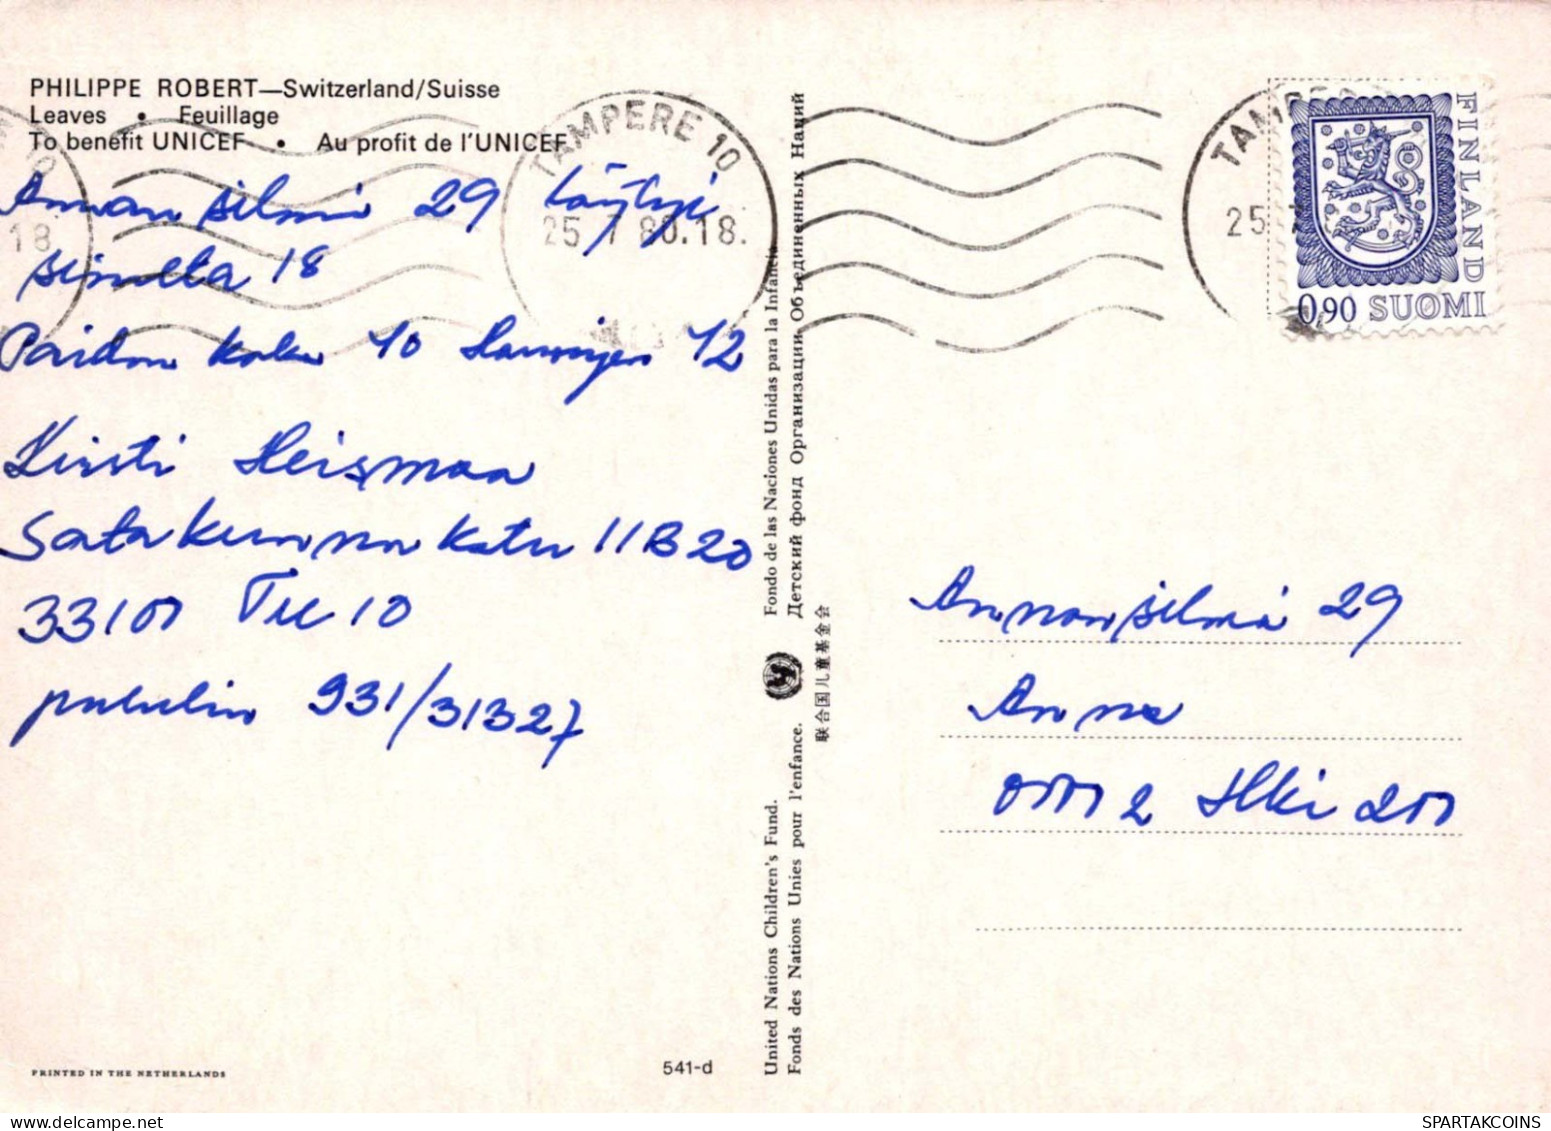 PHILIPPE ROBERT—Switzerland/Suisse
Leaves • Feuillage
To benefit UNICEF • Au profit de l'UNICEF
TAMPERE 10
25.7 80.18.
18
Annan silmä 29 Löytyi
sivulta 18
Paidan koko 40 Hansujen 42
Kirsti Heismaa
Satakunnankatu 11B20
33100 Tre 10
puhelin 931/31327
PRINTED IN THE NETHERLANDS
541-d
United Nations Children's Fund.
Fonds des Nations Unies pour l'enfance.
Fondo de las Naciones Unidas para la Infancia
Детский фонд Организации Объединенных Наций
联合国儿童基金会
TAMPE
25 7
FINLAND
0,90 SUOMI
Annan silmä 29
Anna
00002 Hki 200
SPARTAKCOINS